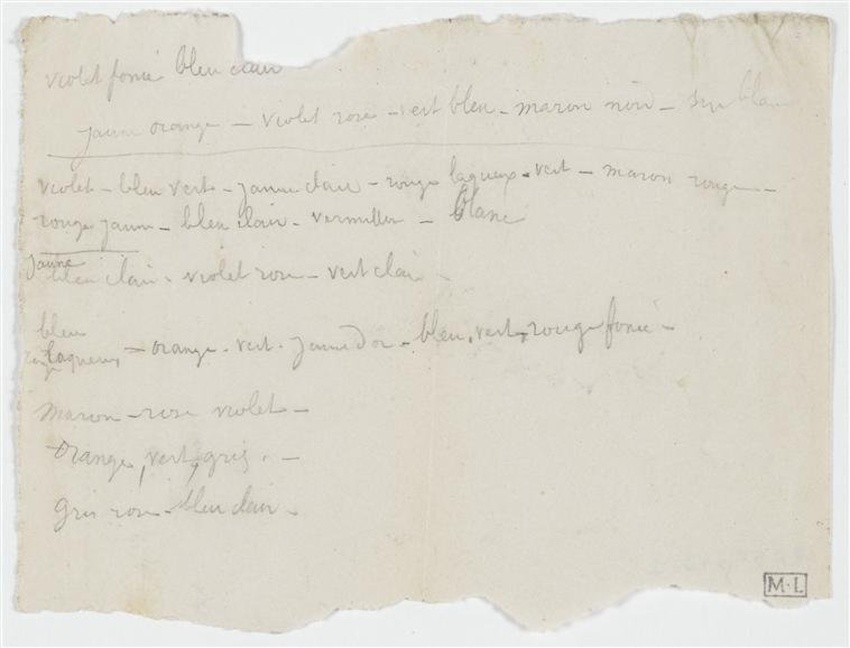 violet foncé bleu clair
jaune orange – violet rose – vert bleu – maron noir – sur blanc
violet – bleu vert – jaune clair – rouge laqueux – vert – maron rouge –
rouge jaune – bleu clair – vermillon – blanc
jaune
bleu clair – violet rose – vert clair –
bleu
rouge laqueux – orange – vert – jaune d'or – bleu, vert, rouge foncé –
maron – rose violet –
orange, vert, gris. –
gris rose – bleu clair –
M.L